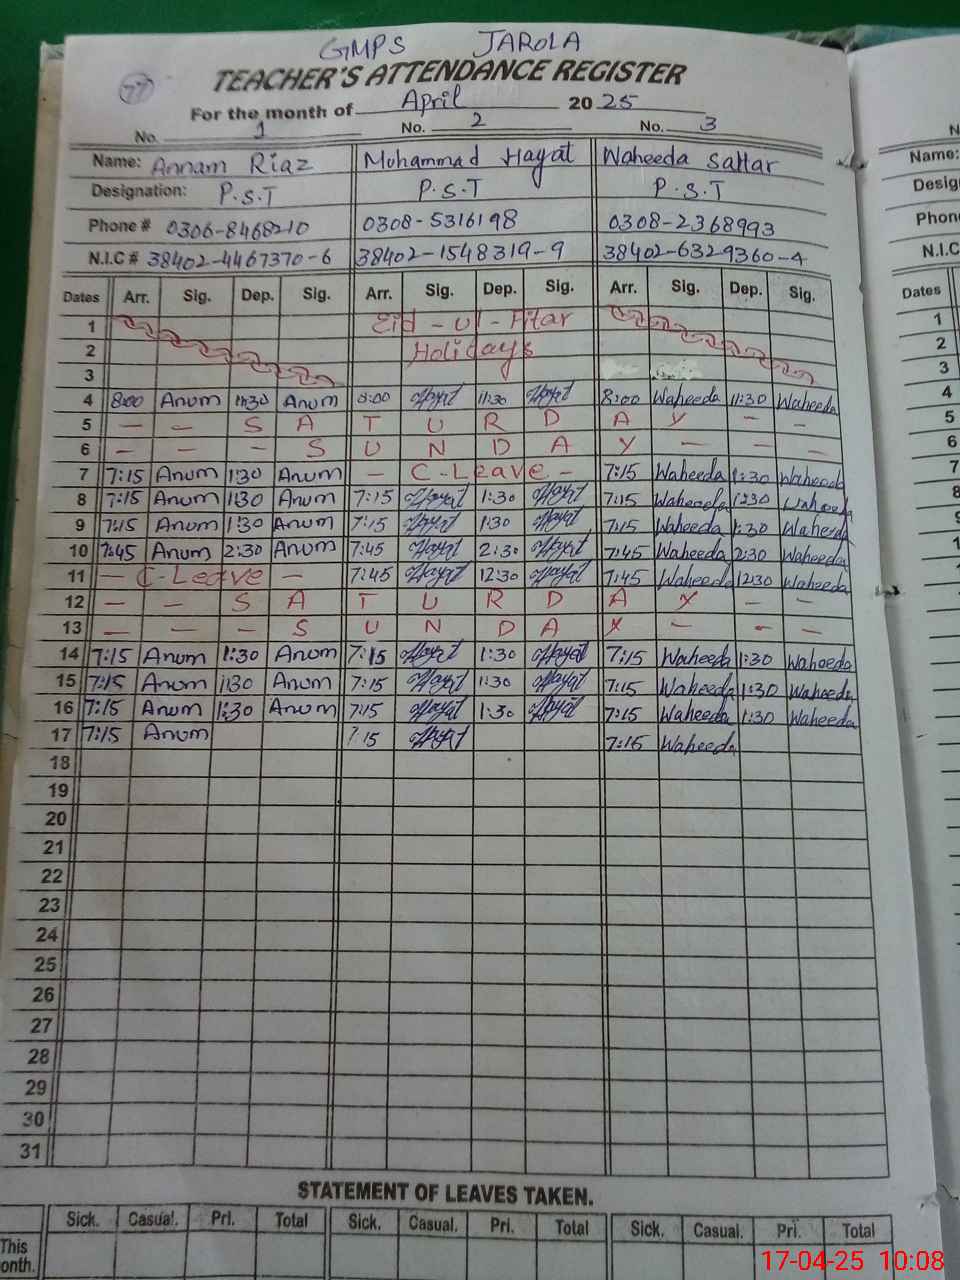 GMPS JAROLA
77 TEACHER'S ATTENDANCE REGISTER
For the month of April 2025
No. 1 No. 2 No. 3
Name: Annam Riaz Muhammad Hayat Waheeda Sattar Name:
Designation: P.S.T P.S.T P.S.T Desig
Phone # 0306-8468210 0308-5316198 0308-2368993 Phon
N.I.C # 38402-4467370-6 38402-1548319-9 38402-6329360-4 N.I.C
Dates Arr. Sig. Dep. Sig. Arr. Sig. Dep. Sig. Arr. Sig. Dep. Sig. Dates
1 Eid-ul-Fitar 1
2 Holidays 2
3 3
4 8:00 Anum 11:30 Anum 8:00 Hayat 11:30 Hayat 8:00 Waheeda 11:30 Waheeda 4
5 - - S A T U R D A Y - - 5
6 - - - S U N D A Y - - - 6
7 7:15 Anum 1:30 Anum - C-Leave - 7:15 Waheeda 1:30 Waheeda 7
8 7:15 Anum 1:30 Anum 7:15 Hayat 1:30 Hayat 7:15 Waheeda 1:30 Waheeda 8
9 7:15 Anum 1:30 Anum 7:15 Hayat 1:30 Hayat 7:15 Waheeda 1:30 Waheeda 9
10 7:45 Anum 2:30 Anum 7:45 Hayat 2:30 Hayat 7:45 Waheeda 2:30 Waheeda
11 - C-Leave - 7:45 Hayat 12:30 Hayat 7:45 Waheeda 12:30 Waheeda
12 - - S A T U R D A Y - -
13 - - - S U N D A Y - - -
14 7:15 Anum 1:30 Anum 7:15 Hayat 1:30 Hayat 7:15 Waheeda 1:30 Waheeda
15 7:15 Anum 1:30 Anum 7:15 Hayat 1:30 Hayat 7:15 Waheeda 1:30 Waheeda
16 7:15 Anum 1:30 Anum 7:15 Hayat 1:30 Hayat 7:15 Waheeda 1:30 Waheeda
17 7:15 Anum 7:15 Hayat 7:15 Waheeda
18
19
20
21
22
23
24
25
26
27
28
29
30
31
STATEMENT OF LEAVES TAKEN.
Sick. Casual. Pri. Total Sick. Casual. Pri. Total Sick. Casual. Pri. Total
This
onth.
17-04-25 10:08